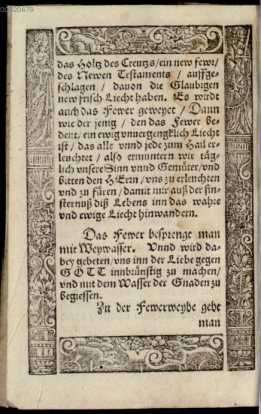 das Holtz des Creutzs / ein new fewr /
des Newen Testaments / auffge-
schlagen / dauon die Glaubigen
new frisch Liecht haben. Es wirdt
auch das Fewer geweyet / Dann
wie der jenig / den das Fewer be-
deut / ein ewig vnuergengklich Liecht
ist / das alle vnnd jede zum Hail er-
leuchtet / also ermuntern wir täg-
lich vnsere Sinn vnnd Gemüter / vnd
bitten den HErrn / vns zu erleuchten
vnd zu füren / damit wir auß der fin-
sternuß diß Lebens inn das wahre
vnd ewige Liecht hinwandern.
Das Fewer besprenge man
mit Weywasser. Vnnd wird da-
bey gebeten / vns inn der Liebe gegen
GOTT innbrünstig zu machen /
vnd mit dem Wasser der Gnaden zu
begiessen.
Zu der Fewerweyhe geht
man